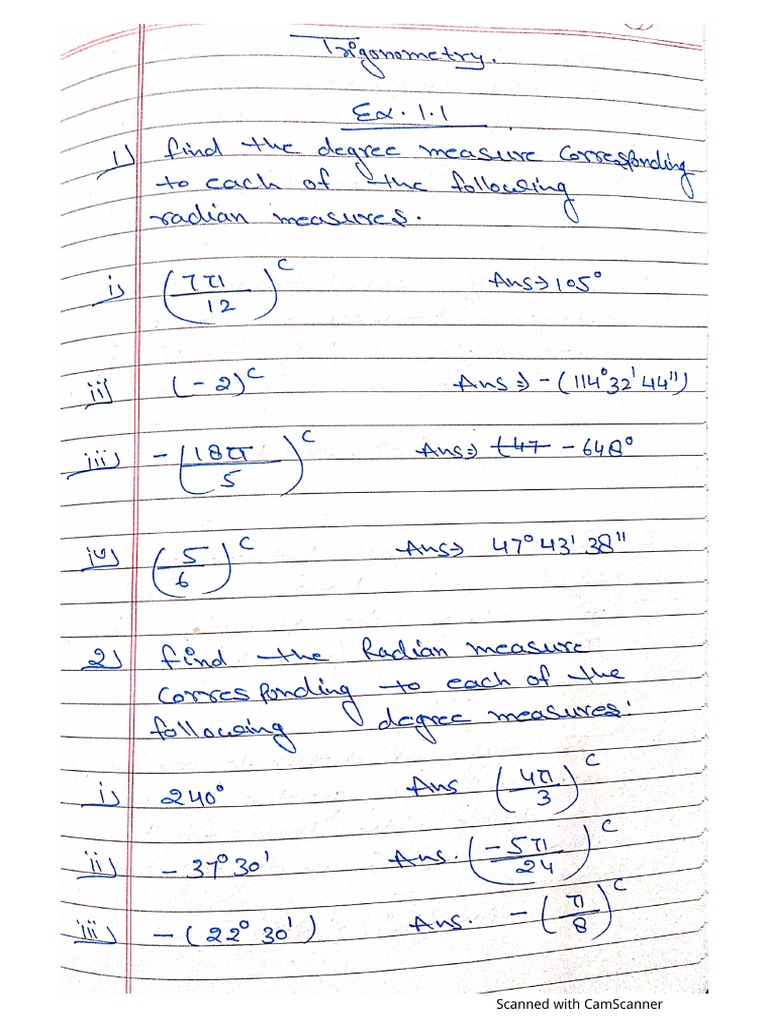 Trigonometry.
Ex. 1.1
1) find the degree measure corresponding
to each of the following
radian measures.
i) (7π/12)^c Ans⇒ 105°
ii) (-2)^c Ans⇒ -(114°32'44")
iii) -(18π/5)^c Ans⇒ -648°
iv) (5/6)^c Ans⇒ 47°43'38"
2) find the Radian measure
corresponding to each of the
following degree measures:
i) 240° Ans (4π/3)^c
ii) -37°30' Ans. (-5π/24)^c
iii) -(22°30') Ans. -(π/8)^c
Scanned with CamScanner